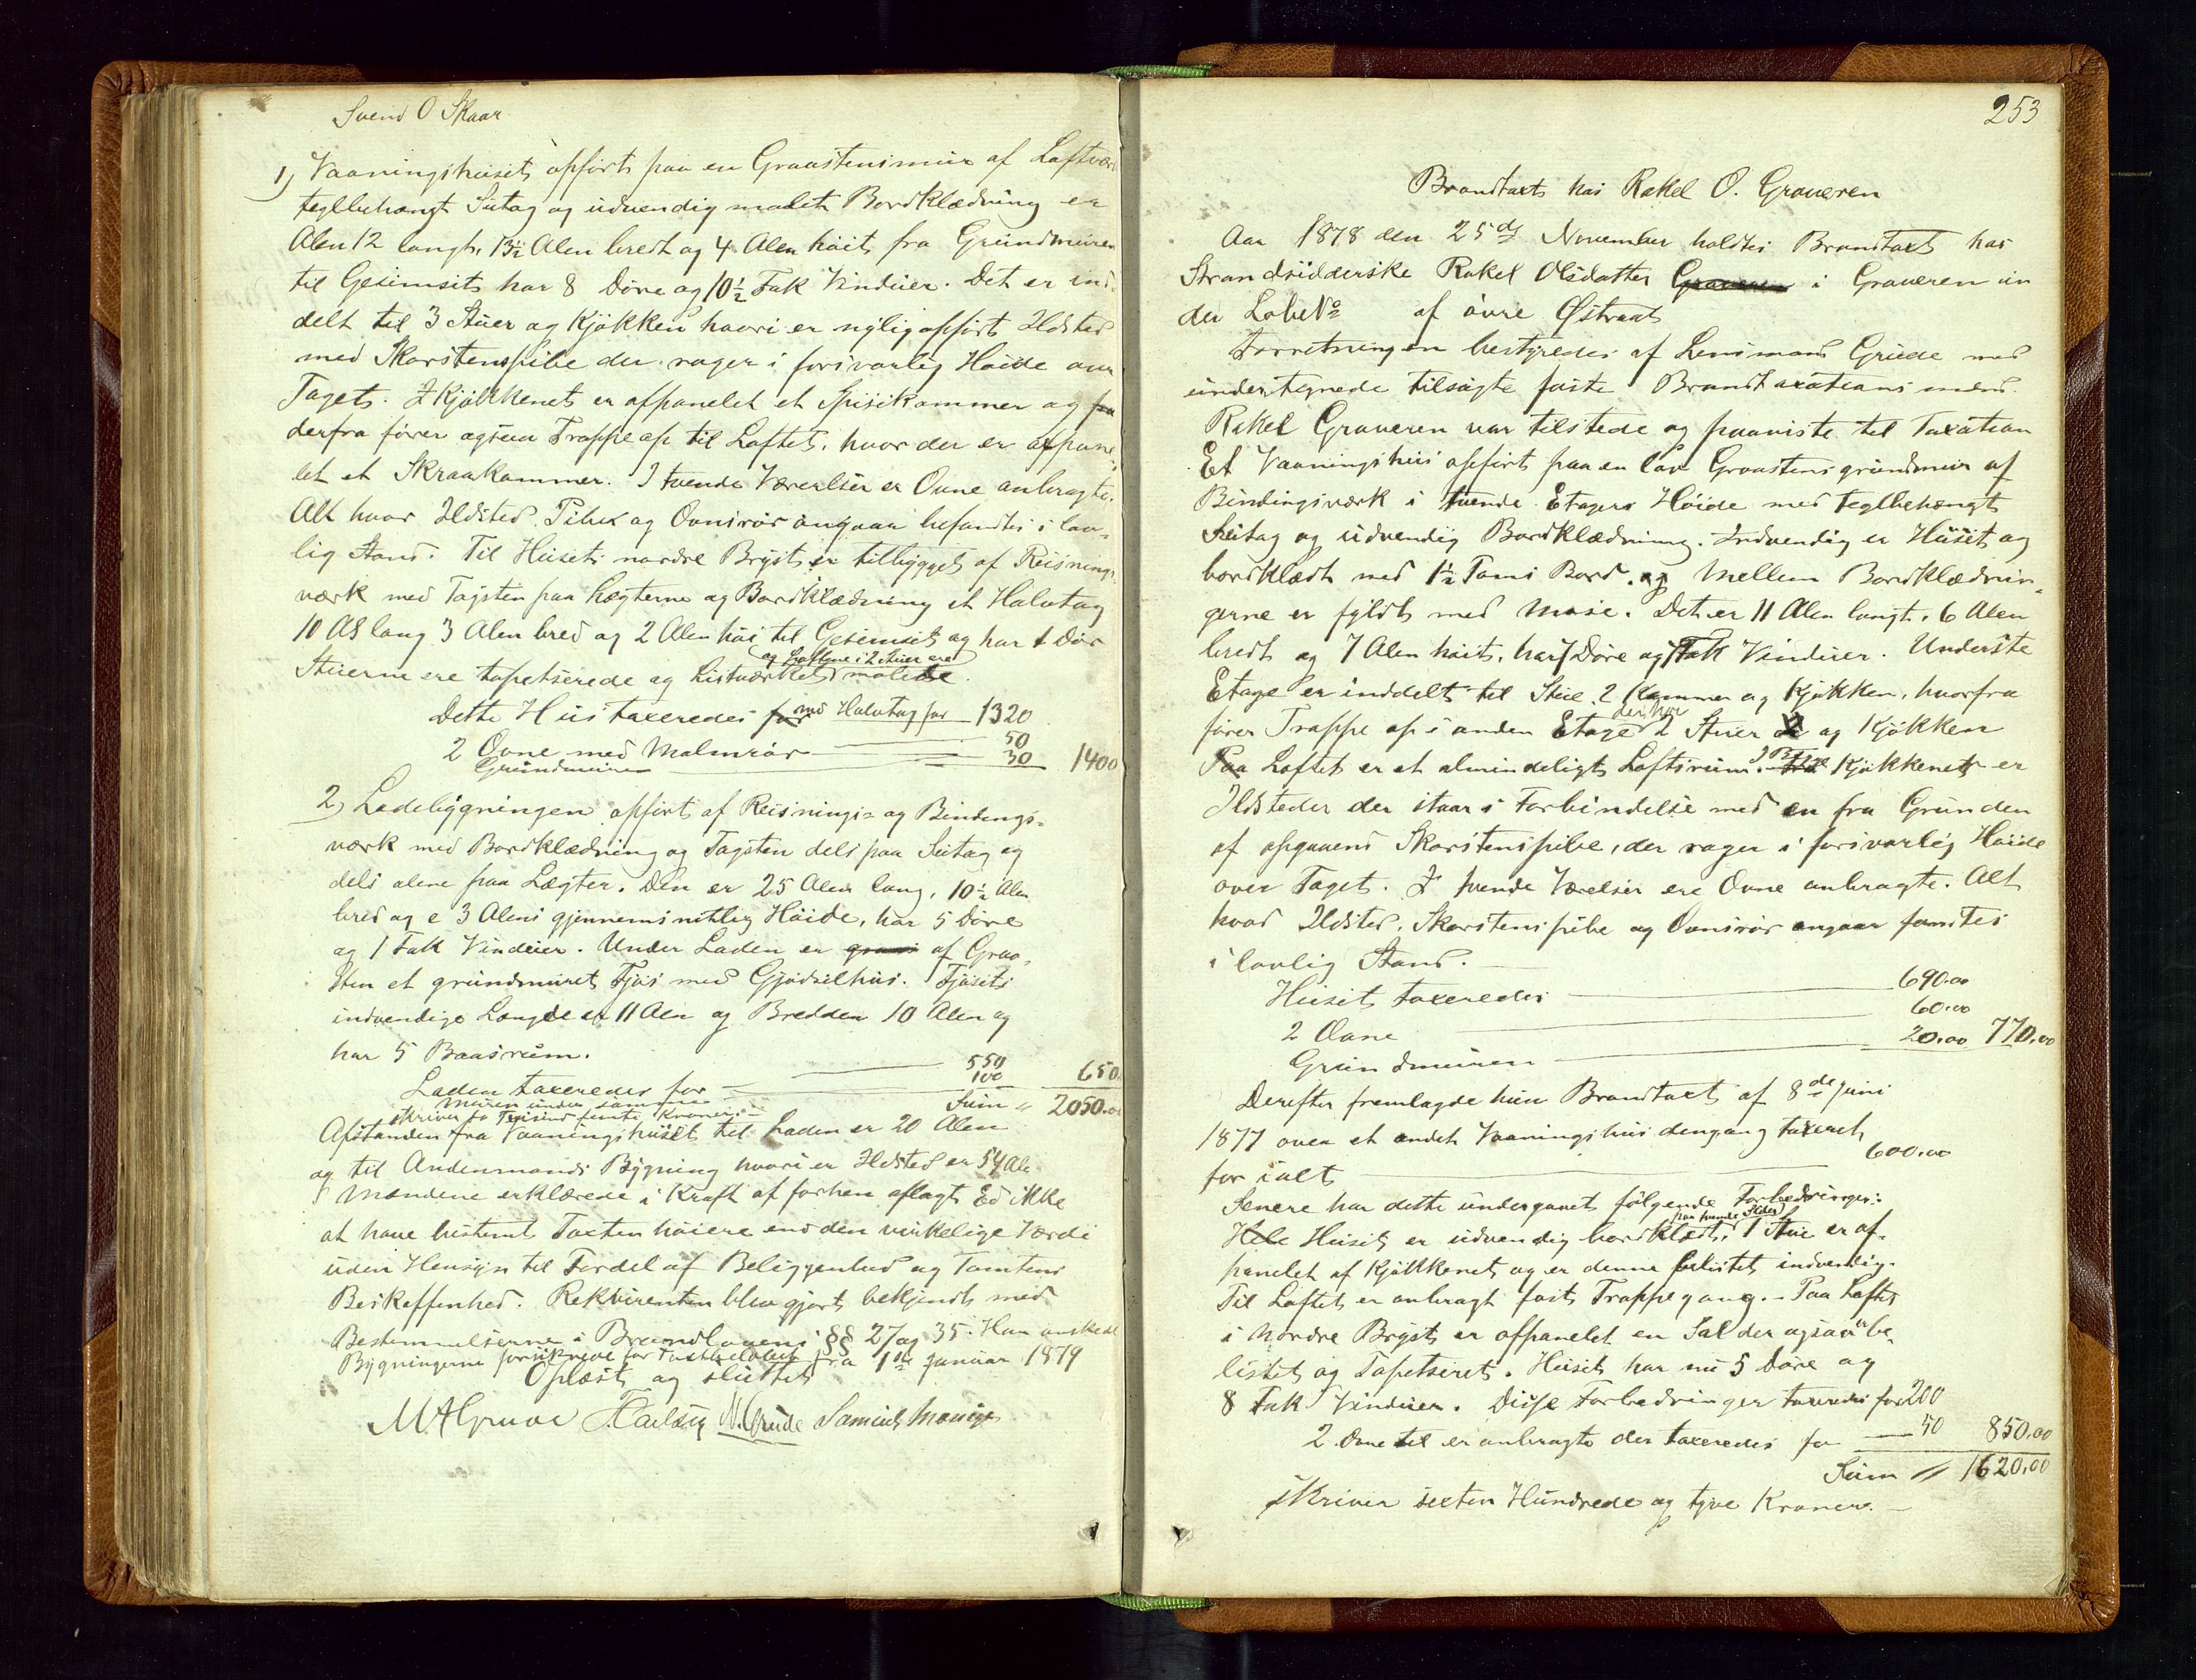 Svend O Skaar
1) Vaaningshuset opført paa en Graastensmur af Laftvær
teglbehængt Sutag og udvendig malet Bordklædning er
Alen 12 langt, 13½ Alen bredt og 4 Alen høit fra Grundmuren
til Gesimset har 8 Døre og 10½ Fak Vinduer. Det er ind-
delt til 3 Stuer og Kjøkken hvori er nylig opført Ildsted
med Skorstenspibe der rager i forsvarlig Høide over
Taget. I Kjøkkenet er afpanelet et Spisekammer og
derfra fører ogsaa Trappe op til Loftet, hvor der er afpane-
let et Skraakammer. I tvende Værelser er Ovne anbragte.
Alt hvor Ildsted, Piber og Ovnsrør angaar befandtes i lov-
lig Stand. Til Husets nordre Bryst er tilbygget af Reisnings-
værk med Tagsten paa Lægterne og Bordklædning et Halvtag
10 Al lang 3 Alen bred og 2 Alen høi til Gesimset og har 1 Dør
og Loftene i 2 Stuer ere
Stuerne ere tapetserede og Listværket malede.
Dette Hus taxeredes for med Halvtag for 1320
2 Ovne med Malmrør 50
Grundmuren 30 1400
2) Ladebygningen opført af Reisnings- og Bindings-
værk med Bordklædning og Tagsten dels paa Sutag og
dels alene paa Lægter. Den er 25 Alen lang, 10½ Alen
bred og c 3 Alens gjennemsnitlig Høide, har 5 Døre
og 1 Fak Vinduer. Under Laden er af Graa-
sten et grundmuret Fjøs med Gjødselhus. Fjøsets
indvendige Længde er 11 Alen og Bredden 10 Alen og
har 5 Baasrum.
Laden taxeredes for 550
Muren under samme 100 650.
Sum " 2050.00
skriver to Tusind femti Kroner.
Afstanden fra Vaaningshuset til Laden er 20 Alen
og til Andenmands Bygning hvori er Ildsted er 54 Al.
Mændene erklærede i Kraft af forhen aflagt Ed ikke
at have bestemt Taxten høiere end den virkelige Værdi
uden Hensyn til Fordel af Beliggenhed og Tomtens
Beskaffenhed. Rekvirenten blev gjort bekjendt med
Bestemmelserne i Brandlovens §§ 27 og 35. Han ønskede
Bygningerne forsikrede for Taxtbeløbet fra 1ste Januar 1879
Oplæst og sluttet
N. Grude Samuel

253
Brandtaxt hos Rakel O. Graveren
Aar 1878 den 25de November holdtes Brandtaxt hos
Strandsidderske Rakel Olsdatter Graveren i Graveren un
der Løbe No af øvre Østraat
Forretningen bestyredes af Lensmand Grude med
undertegnede tilsagte faste Brandtaxationsmænd.
Rakel Graveren var tilstede og paaviste til Taxation
Et Vaaningshus opført paa en lav Graastens grundmur af
Bindingsværk i tvende Etagers Høide med teglbehængt
Sutag og udvendig Bordklædning. Indvendig er Huset og
bordklædt med 1½ Toms Bord, og mellem Bordklædnin-
gerne er fyldt med Mose. Det er 11 Alen langt, 6 Alen
bredt og 7 Alen høit, har 7 Døre og Fak Vinduer. Underste
Etage er inddelt til Stue, 2 Kammer og Kjøkken, hvorfra
der har
fører Trappe op i anden Etage 2 Stuer og Kjøkken
Paa Loftet er et almindeligt Loftsrum. I Kjøkkenet er
Ildsteder der staar i Forbindelse med en fra Grunden
af opgaaend Skorstenspibe, der rager i forsvarlig Høide
over Taget. I tvende Værelser ere Ovne anbragte. Alt
hvad Ildsted, Skorstenspibe og Ovnsrør angaar fandtes
i lovlig Stand.
Huset taxeredes 690.00
2 Ovne 60.00
Grundmuren 20.00 770.00
Derefter fremlagde hun Brandtaxt af 8de Juni
1877 over et andet Vaaningshus dengang taxeret
for ialt 600.00
Senere har dette undergaaet følgende Forbedringer:
paa tvende Sider
Hele Huset er udvendig bordklædt, 1 Stue er af-
panelet af Kjøkkenet og er denne belistet indvendig.
Til Loftet er anbragt fast Trappegang. - Paa Loftet
i Nordre Bryst er afpanelet en Sal der ogsaa er be-
listet og Tapetseret. Huset har nu 5 Døre og
8 Fak Vinduer. Disse Forbedringer taxeredes for 200
2 Ovne til er anbragte der taxeredes for 50 850.00
Sum " 1620.00
skriver sexten Hundrede og tyve Kroner.